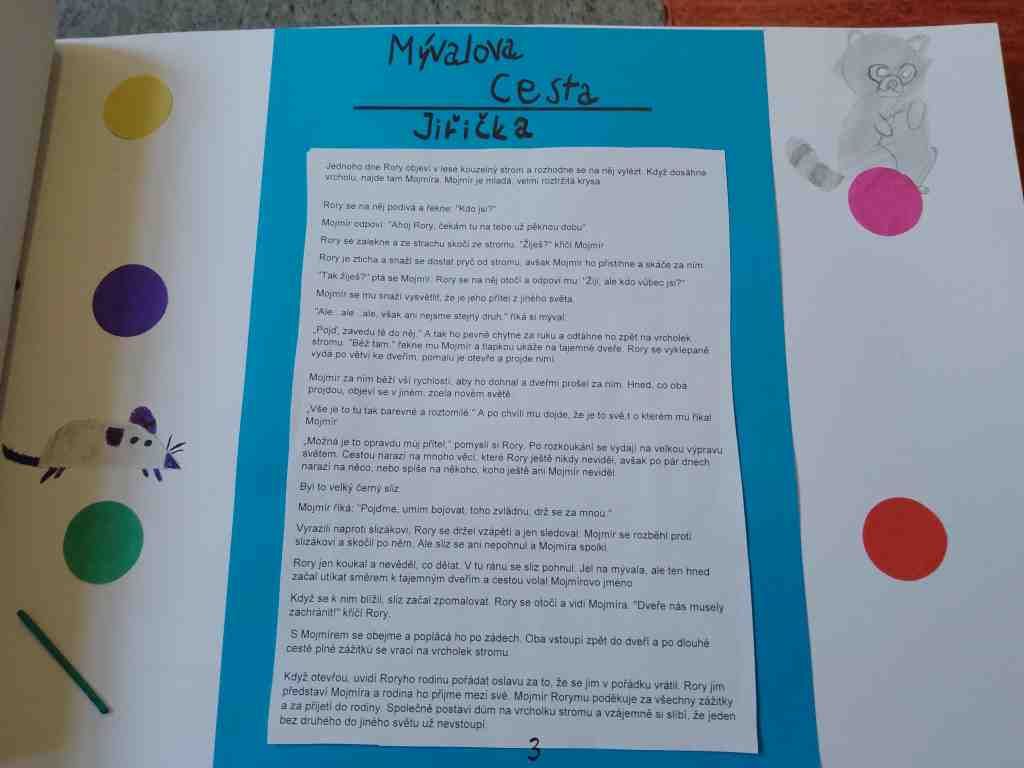 Mývalova
Cesta
Jiřička
Jednoho dne Rory objeví v lese kouzelný strom a rozhodne se na něj vylézt. Když dosáhne
vrcholu, najde tam Mojmíra. Mojmír je mladá, velmi roztržitá krysa.
Rory se na něj podívá a řekne: "Kdo jsi?"
Mojmír odpoví: "Ahoj Rory, čekám tu na tebe už pěknou dobu".
Rory se zalekne a ze strachu skočí ze stromu. "Žiješ?" křičí Mojmír
Rory je zticha a snaží se dostat pryč od stromu, avšak Mojmír ho přistihne a skáče za ním.
"Tak žiješ?" ptá se Mojmír. Rory se na něj otočí a odpoví mu: "Žiji, ale kdo vůbec jsi?"
Mojmír se mu snaží vysvětlit, že je jeho přítel z jiného světa.
"Ale...ale...ale, však ani nejsme stejný druh." říká si mýval.
„Pojď, zavedu tě do něj." A tak ho pevně chytne za ruku a odtáhne ho zpět na vrcholek
stromu. "Běž tam." řekne mu Mojmír a tlapkou ukáže na tajemné dveře. Rory se vyklepaně
vydá po větvi ke dveřím, pomalu je otevře a projde nimi.
Mojmír za ním běží vší rychlostí, aby ho dohnal a dveřmi prošel za ním. Hned, co oba
projdou, objeví se v jiném, zcela novém světě.
„Vše je to tu tak barevné a roztomilé." A po chvíli mu dojde, že je to svě,t o kterém mu říkal
Mojmír.
„Možná je to opravdu můj přítel," pomyslí si Rory. Po rozkoukání se vydají na velkou výpravu
světem. Cestou narazí na mnoho věcí, které Rory ještě nikdy neviděl, avšak po pár dnech
narazí na něco, nebo spíše na někoho, koho ještě ani Mojmír neviděl.
Byl to velký černý sliz.
Mojmír říká: "Pojďme, umím bojovat, toho zvládnu, drž se za mnou."
Vyrazili naproti slizákovi, Rory se držel vzápětí a jen sledoval. Mojmír se rozběhl proti
slizákovi a skočil po něm. Ale sliz se ani nepohnul a Mojmíra spolkl.
Rory jen koukal a nevěděl, co dělat. V tu ránu se sliz pohnul. Jel na mývala, ale ten hned
začal utíkat směrem k tajemným dveřím a cestou volal Mojmírovo jméno.
Když se k nim blížil, sliz začal zpomalovat. Rory se otočí a vidí Mojmíra. "Dveře nás musely
zachránit!" křičí Rory.
S Mojmírem se obejme a poplácá ho po zádech. Oba vstoupí zpět do dveří a po dlouhé
cestě plné zážitků se vrací na vrcholek stromu.
Když otevřou, uvidí Roryho rodinu pořádat oslavu za to, že se jim v pořádku vrátil. Rory jim
představí Mojmíra a rodina ho přijme mezi své. Mojmír Rorymu poděkuje za všechny zážitky
a za přijetí do rodiny. Společně postaví dům na vrcholku stromu a vzájemně si slíbí, že jeden
bez druhého do jiného světu už nevstoupí.
3